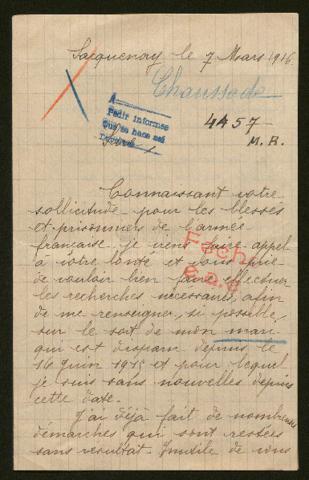 Sacquenay, le 7 Mars 1916
Chaussade
A
Pedir informes
Que se hace así
4457
M. R.
Connaissant votre
sollicitude pour les blessés
et prisonniers de l'armée
française je viens faire appel
à votre bonté et vous prie
de vouloir bien faire effectuer
les recherches nécessaires, afin
de me renseigner, si possible,
sur le sort de mon mari
qui est disparu depuis le
16 Juin 1915 et pour lequel
je suis sans nouvelles depuis
cette date.
J'ai déjà fait de nombreuses
démarches qui sont restées
sans résultat. Inutile de vous
Fecha